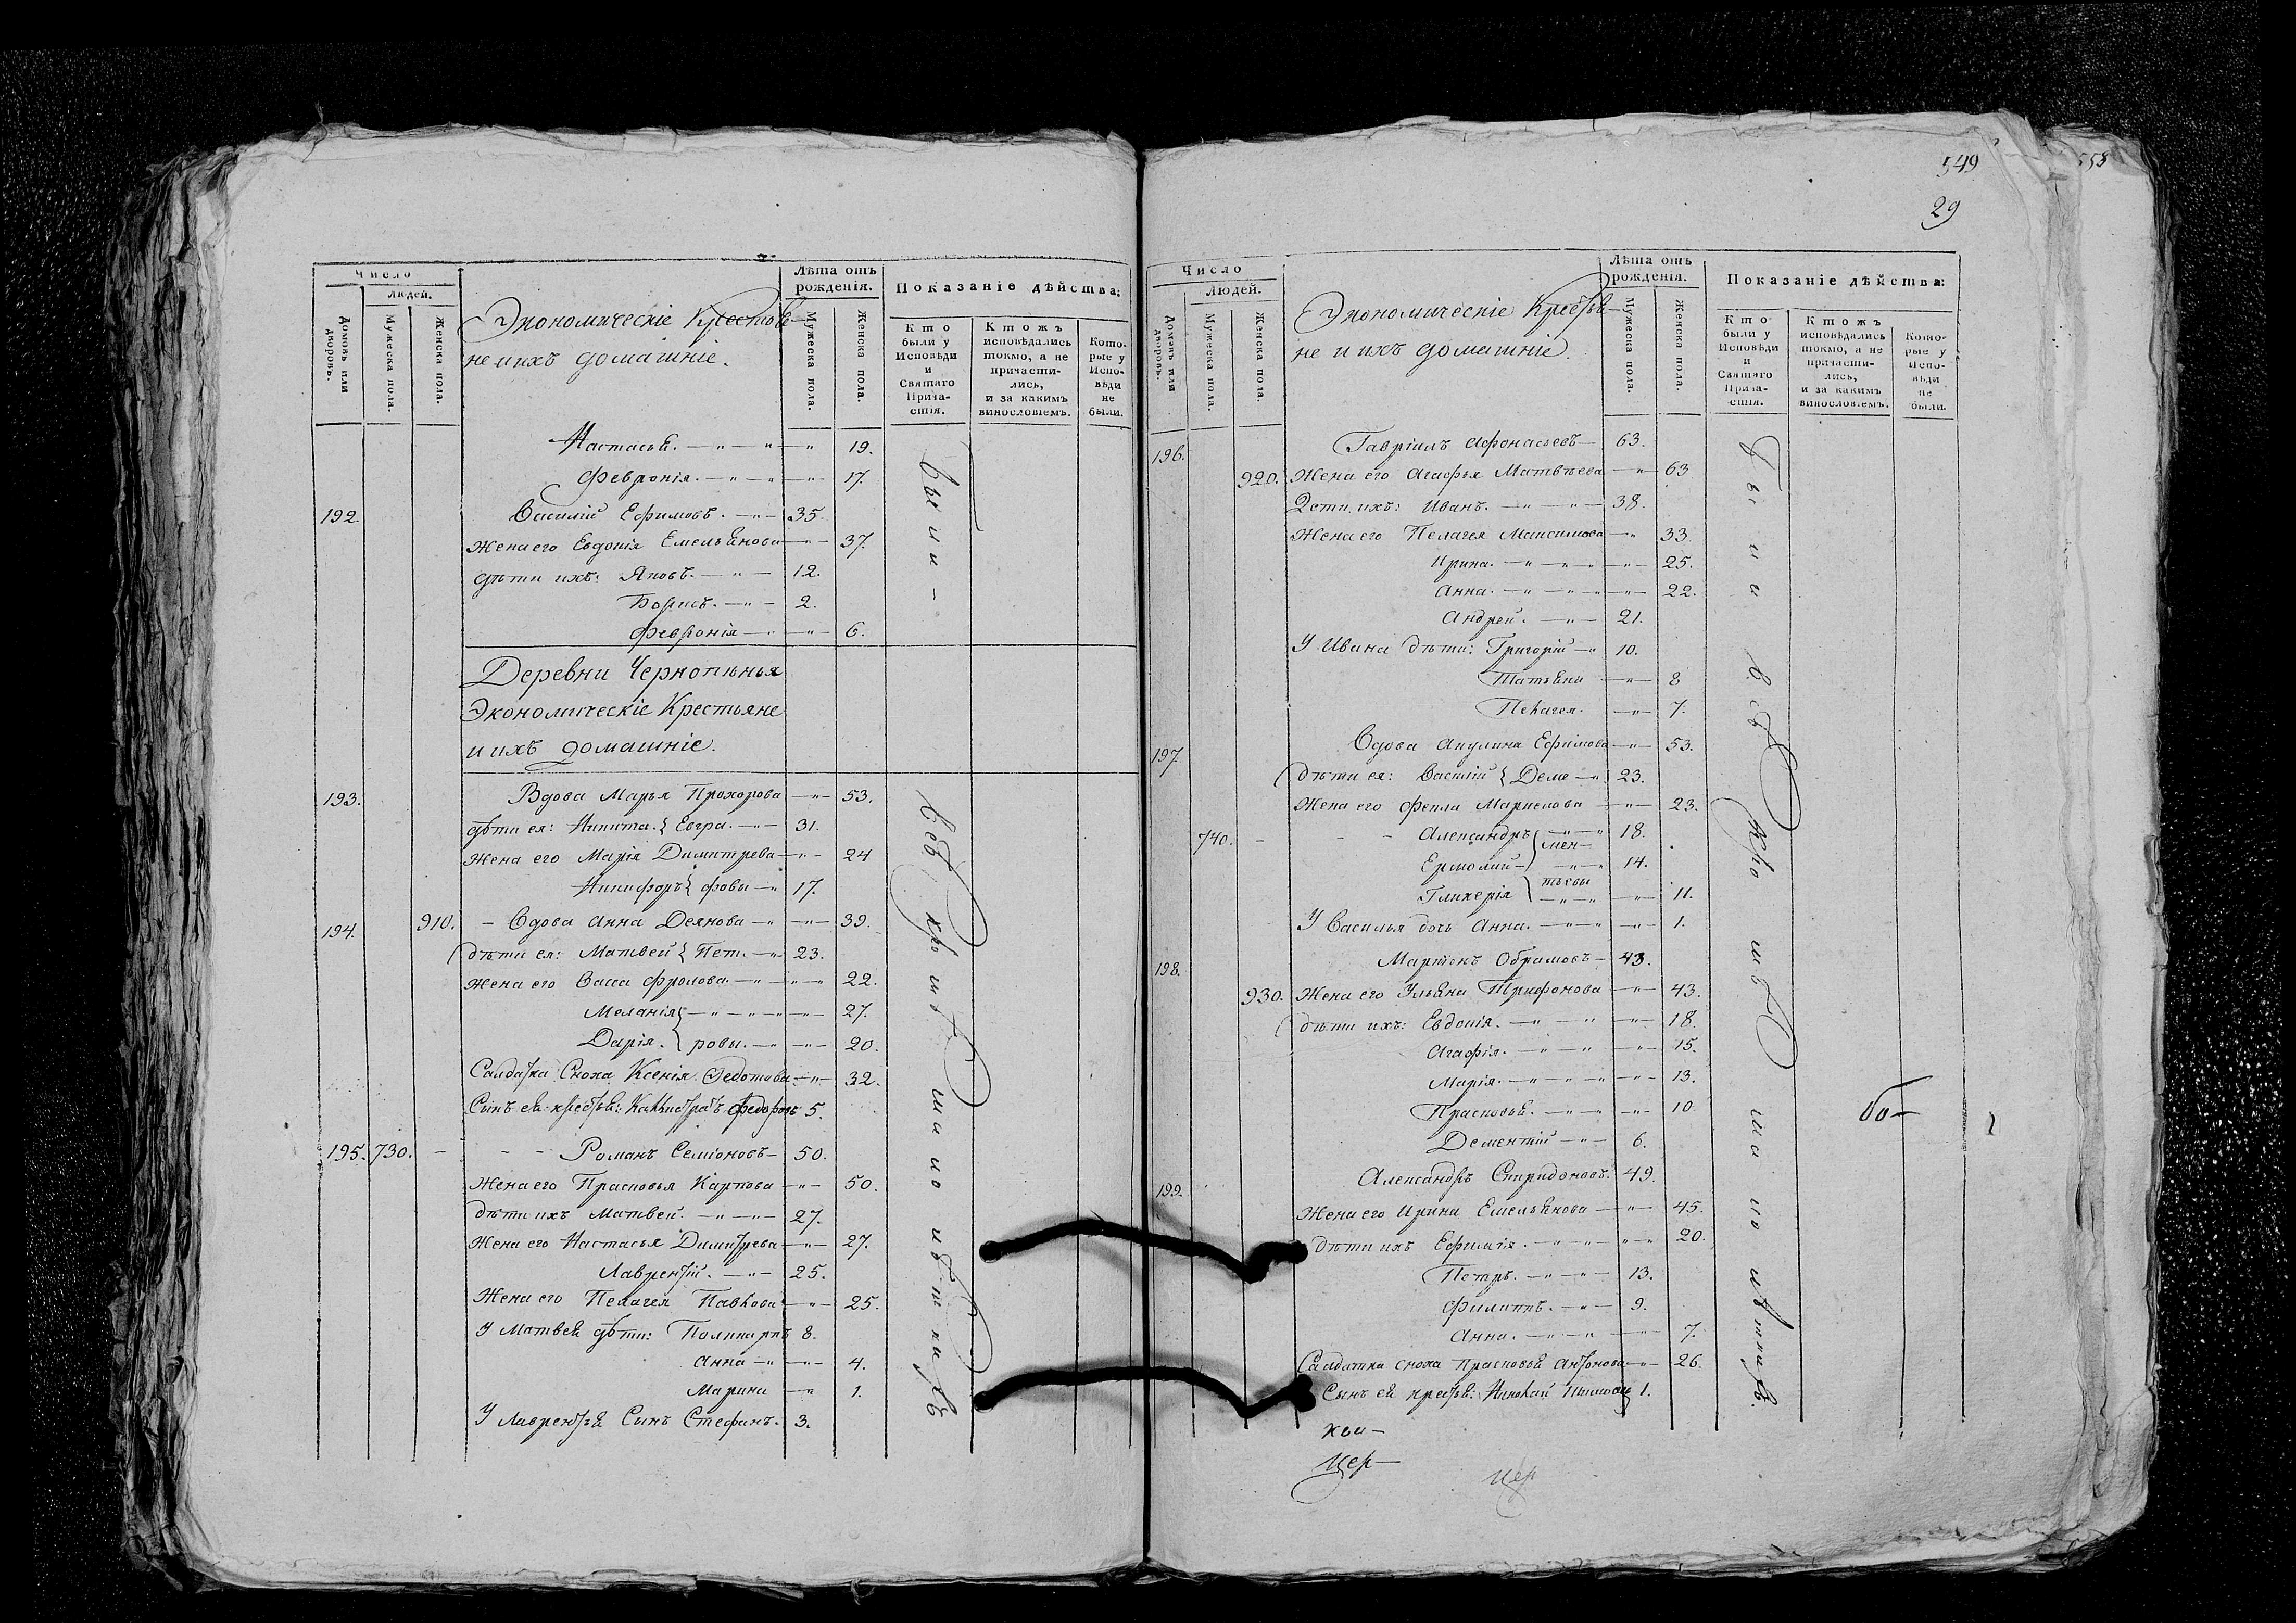 Число
людей.
Домовъ или дворовъ.
Мужеска пола.
Женска пола.
Экономическіе Крестья-
не и ихъ домашніе.
Лѣта отъ рожденія.
Мужеска пола.
Женска пола.
Показаніе дѣйства:
Кто были у Исповѣди и Святаго Прича-стія.
Ктожъ исповѣдались токмо, а не причасти-лись, и за какимъ винословіемъ.
Кото-рые у Испо-вѣди не были.
Настасья. — 19.
Февронія. — 17.
192. Василій Ефимовъ. — 35.
Жена его Евдокія Емельянова — 37.
Дѣти ихъ: Яковъ. — 12.
Борисъ. — 2.
Февронія — 6.
были —
Деревни Чернопенья
Экономическіе Крестьяне
и ихъ домашніе.
193. Вдова Марья Прохорова — 53.
Дѣти ея: Никита. { Евгра. — 31.
Жена его Марія Димитрева — 24
Никифоръ { фовы — 17.
194. 910. — Вдова Анна Деянова — 39.
Дѣти ея: Матвей { Пет. — 23.
Жена его Васса Фролова. — 22.
Меланія { — 27.
Дарія. { ровы. — 20.
Салдатка Сноха Ксенія Федотова — 32.
Сынъ ея крестья: Каллистратъ Федоровъ 5.
195. 730. — Романъ Семіоновъ — 50.
Жена его Прасковья Карпова — 50.
Дѣти ихъ Матвей. — 27.
Жена его Настасья Димитрева — 27.
Лаврентій. — 25.
Жена его Пелагея Павлова — 25.
У Матвея дѣти: Поликарпъ 8.
Анна — 4.
Марина — 1.
У Лаврентья Сынъ Стефанъ. 3.
всѣ кромѣ малолѣтнихъ
549
29
553
Число
Людей.
Домовъ или дворовъ.
Мужеска пола.
Женска пола.
Экономическіе Крестья-
не и ихъ домашніе.
Лѣта отъ рожденія.
Мужеска пола.
Женска пола.
Показаніе дѣйства:
Кто были у Исповѣди и Святаго Прича-стія.
Ктожъ исповѣдались токмо, а не причасти-лись, и за какимъ винословіемъ.
Кото-рые у Испо-вѣди не были.
196. Гавріилъ Афонасьевъ — 63.
920. Жена его Агафья Матвѣева — 63
Дети ихъ: Иванъ. — 38.
Жена его Пелагея Максимова — 33.
Ирина. — 25.
Анна. — 22.
Андрей. — 21.
У Ивана дѣти: Григорій — 10.
Татьяна — 8
Пелагея. — 7.
197. Вдова Акулина Ефимова — 53.
Дѣти ея: Василій { Деме — 23.
Жена его Фекла Маркелова — 23.
740. — Александръ { — 18.
мен—
Ермолай — } — 14.
тьевы
Гликерія } — 11.
У Василья дочь Анна. — 1.
198. Мартонъ Обрамовъ — 43.
930. Жена его Ульяна Трифонова — 43.
Дѣти ихъ: Евдокія. — 18.
Агафія. — 15.
Марія. — 13.
Прасковья. — 10.
Дементій — 6.
199. Александръ Спиридоновъ. 49.
Жена его Ирина Емельянова — 45.
Дѣти ихъ Ефимія. — 20.
Петръ. — 13.
Филиппъ. — 9.
Анна. — 7.
Салдатка сноха Прасковья Антонова — 26.
Сынъ ея крестья: Николай 1.
были всѣ кромѣ малолѣтнихъ.
цер—
цер